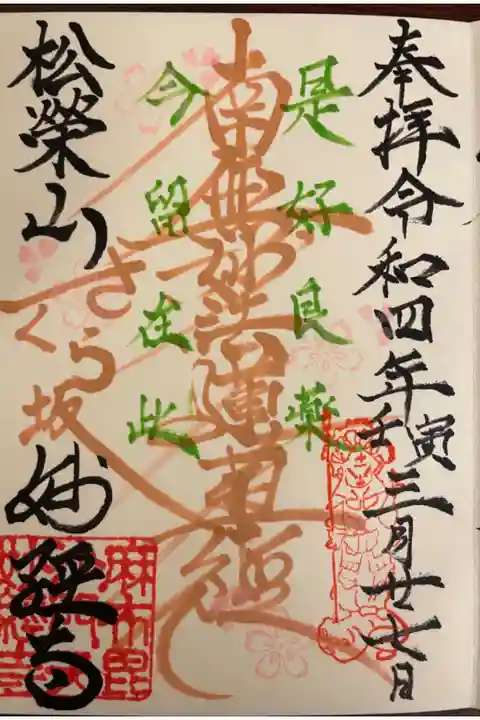 奉拝令和四年壬寅三月廿七日
是好良薬
南無妙法蓮華経
今留在此
さくら坂
松榮山
妙経寺